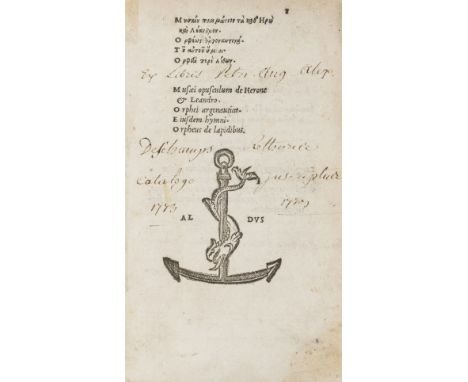 Μουσαίου ποιημάτιον τὰ καθ' Ἡρὼ
καὶ Λέανδρον.
Ὀρφέως ἀργοναυτικά.
Τοῦ αὐτοῦ ὕμνοι.
Ὀρφεὺς περὶ λίθων.
Ex Libris Petri Aug. Alex.
Musæi opusculum de Herone
& Leandro.
Orphei argonautica.
Eiusdem hymni.
Orpheus de lapidibus.
Deschamps
Catalogo
1773
AL DVS